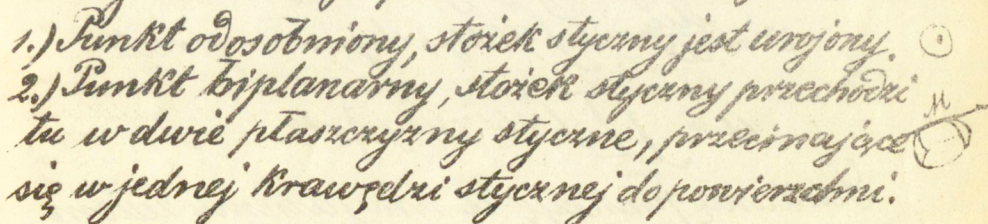 1.) Punkt odosobniony, stożek styczny jest urojony.
2.) Punkt biplanarny, stożek styczny przechodzi
tu w dwie płaszczyzny styczne, przecinające
się w jednej krawędzi stycznej do powierzchni.
M